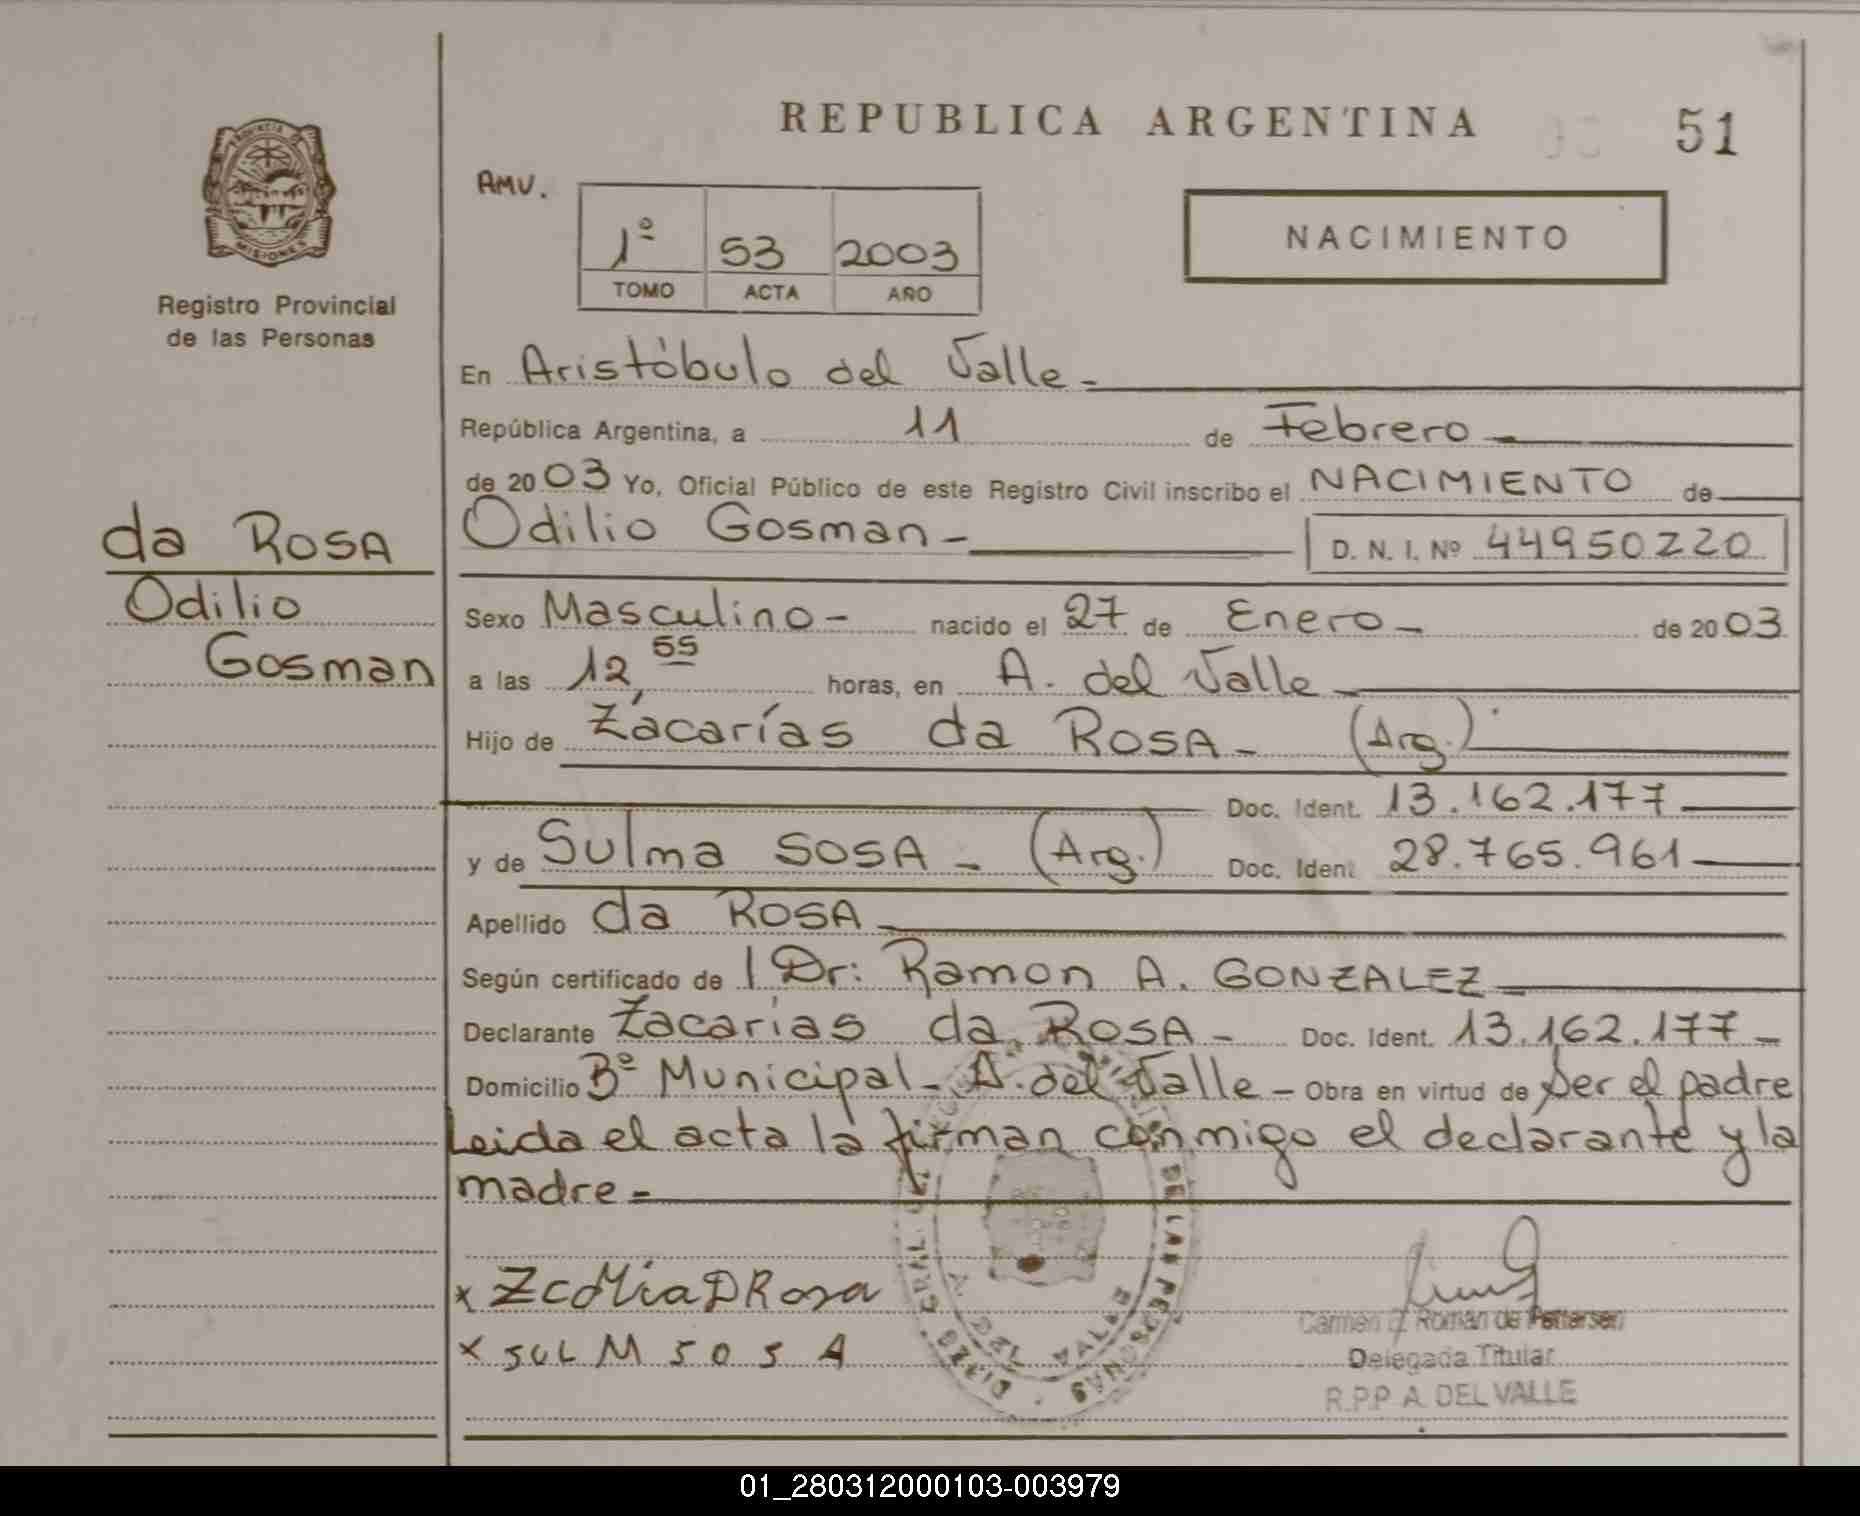 REPUBLICA ARGENTINA
51
PROVINCIA DE
MISIONES
Registro Provincial
de las Personas
AMV.
1º 53 2003
TOMO ACTA AÑO
NACIMIENTO
En Aristóbulo del Valle -
República Argentina, a 11 de Febrero -
de 2003 Yo, Oficial Público de este Registro Civil inscribo el NACIMIENTO de
Odilio Gosman - D. N. I. Nº 44950220
da ROSA
Odilio
Gosman
Sexo Masculino - nacido el 27 de Enero - de 2003
a las 12,55 horas, en A. del Valle -
Hijo de Zacarías da ROSA - (Arg.)
Doc. Ident. 13.162.177
y de Sulma SOSA - (Arg.) Doc. Ident. 28.765.961
Apellido da ROSA
Según certificado de l Dr: Ramon A. GONZALEZ
Declarante Zacarías da ROSA - Doc. Ident. 13.162.177 -
Domicilio Bº Municipal - A. del Valle - Obra en virtud de ser el padre
Leida el acta la firman conmigo el declarante y la
madre =
x
x SUL M SOSA
Carmen Roman de Pettersen
Delegada Titular
R.P.P. A. DEL VALLE
DE LAS PERSONAS
A. DEL VALLE
01_280312000103-003979